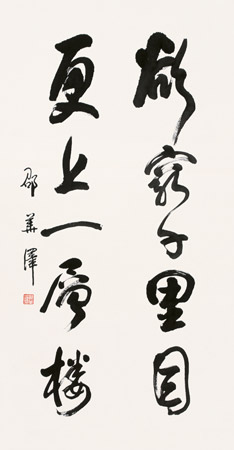 欲穷千里目
更上一层楼
邵華澤